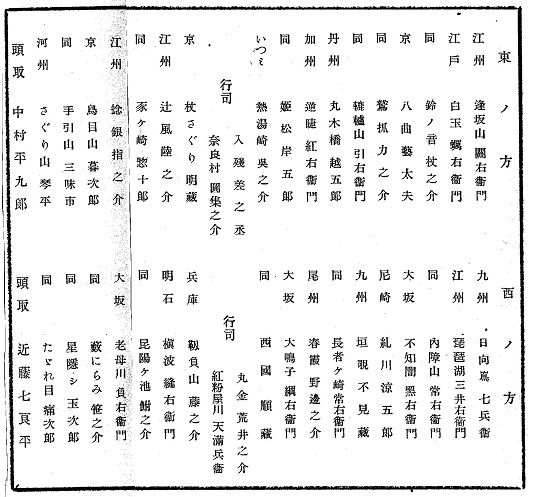 東ノ方
江州 逢坂山 關右衞門
江戸 白玉 蠣右衞門
同 鈴ノ音 杖之介
京 八曲 藝太夫
同 鷲抓 力之介
同 轆轤山 引右衞門
丹州 丸木橋 越五郎
加州 逆睫 紅右衞門
同 姫松 岸五郎
いつミ 熱湯崎 呉之介
行司
入殘 差之丞
奈良村 圖集之介
京 杖さぐり 明藏
江州 辻風 陸之介
同 豕ヶ崎 惣十郎
江州 捻銀 指之介
京 鳥目山 暮次郎
同 手引山 三味市
河州 さぐり山 琴平
頭取 中村平九郎
西ノ方
九州 日向嶌 七兵衞
江州 琵琶湖 三井右衞門
同 内障山 常右衞門
大坂 不知闇 黑右衞門
尼崎 糺川 涼五郎
九州 垣覗 不見藏
同 長者ヶ崎 常右衞門
尾州 春霞 野邊之介
大坂 大鳴子 綱右衞門
同 西國 順藏
行司
丸金 荒井之介
紅粉屋川 天滿兵衞
兵庫 靱負山 藤之介
明石 横波 縫右衞門
同 昆陽ヶ池 鮒之介
大坂 老母川 負右衞門
同 藪にらみ 笹之介
同 星隱シ 玉次郎
同 たゞれ目 痛次郎
頭取 近藤七良平